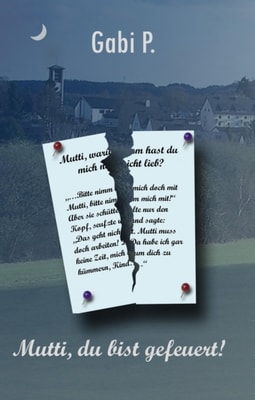 Gabi P.
Mutti, waru om hast du
mich n icht lieb?
„…Bitte nimm mich doch mit
Mutti, bitte nim m mich mit!“
Aber sie schütte lte nur den
Kopf, seufzte u nd sagte:
„Das geht nich t. Mutti muss
doch arbeiten! Da habe ich gar
keine Zeit, mich um dich zu
kümmern, Kind…“
Mutti, du bist gefeuert!